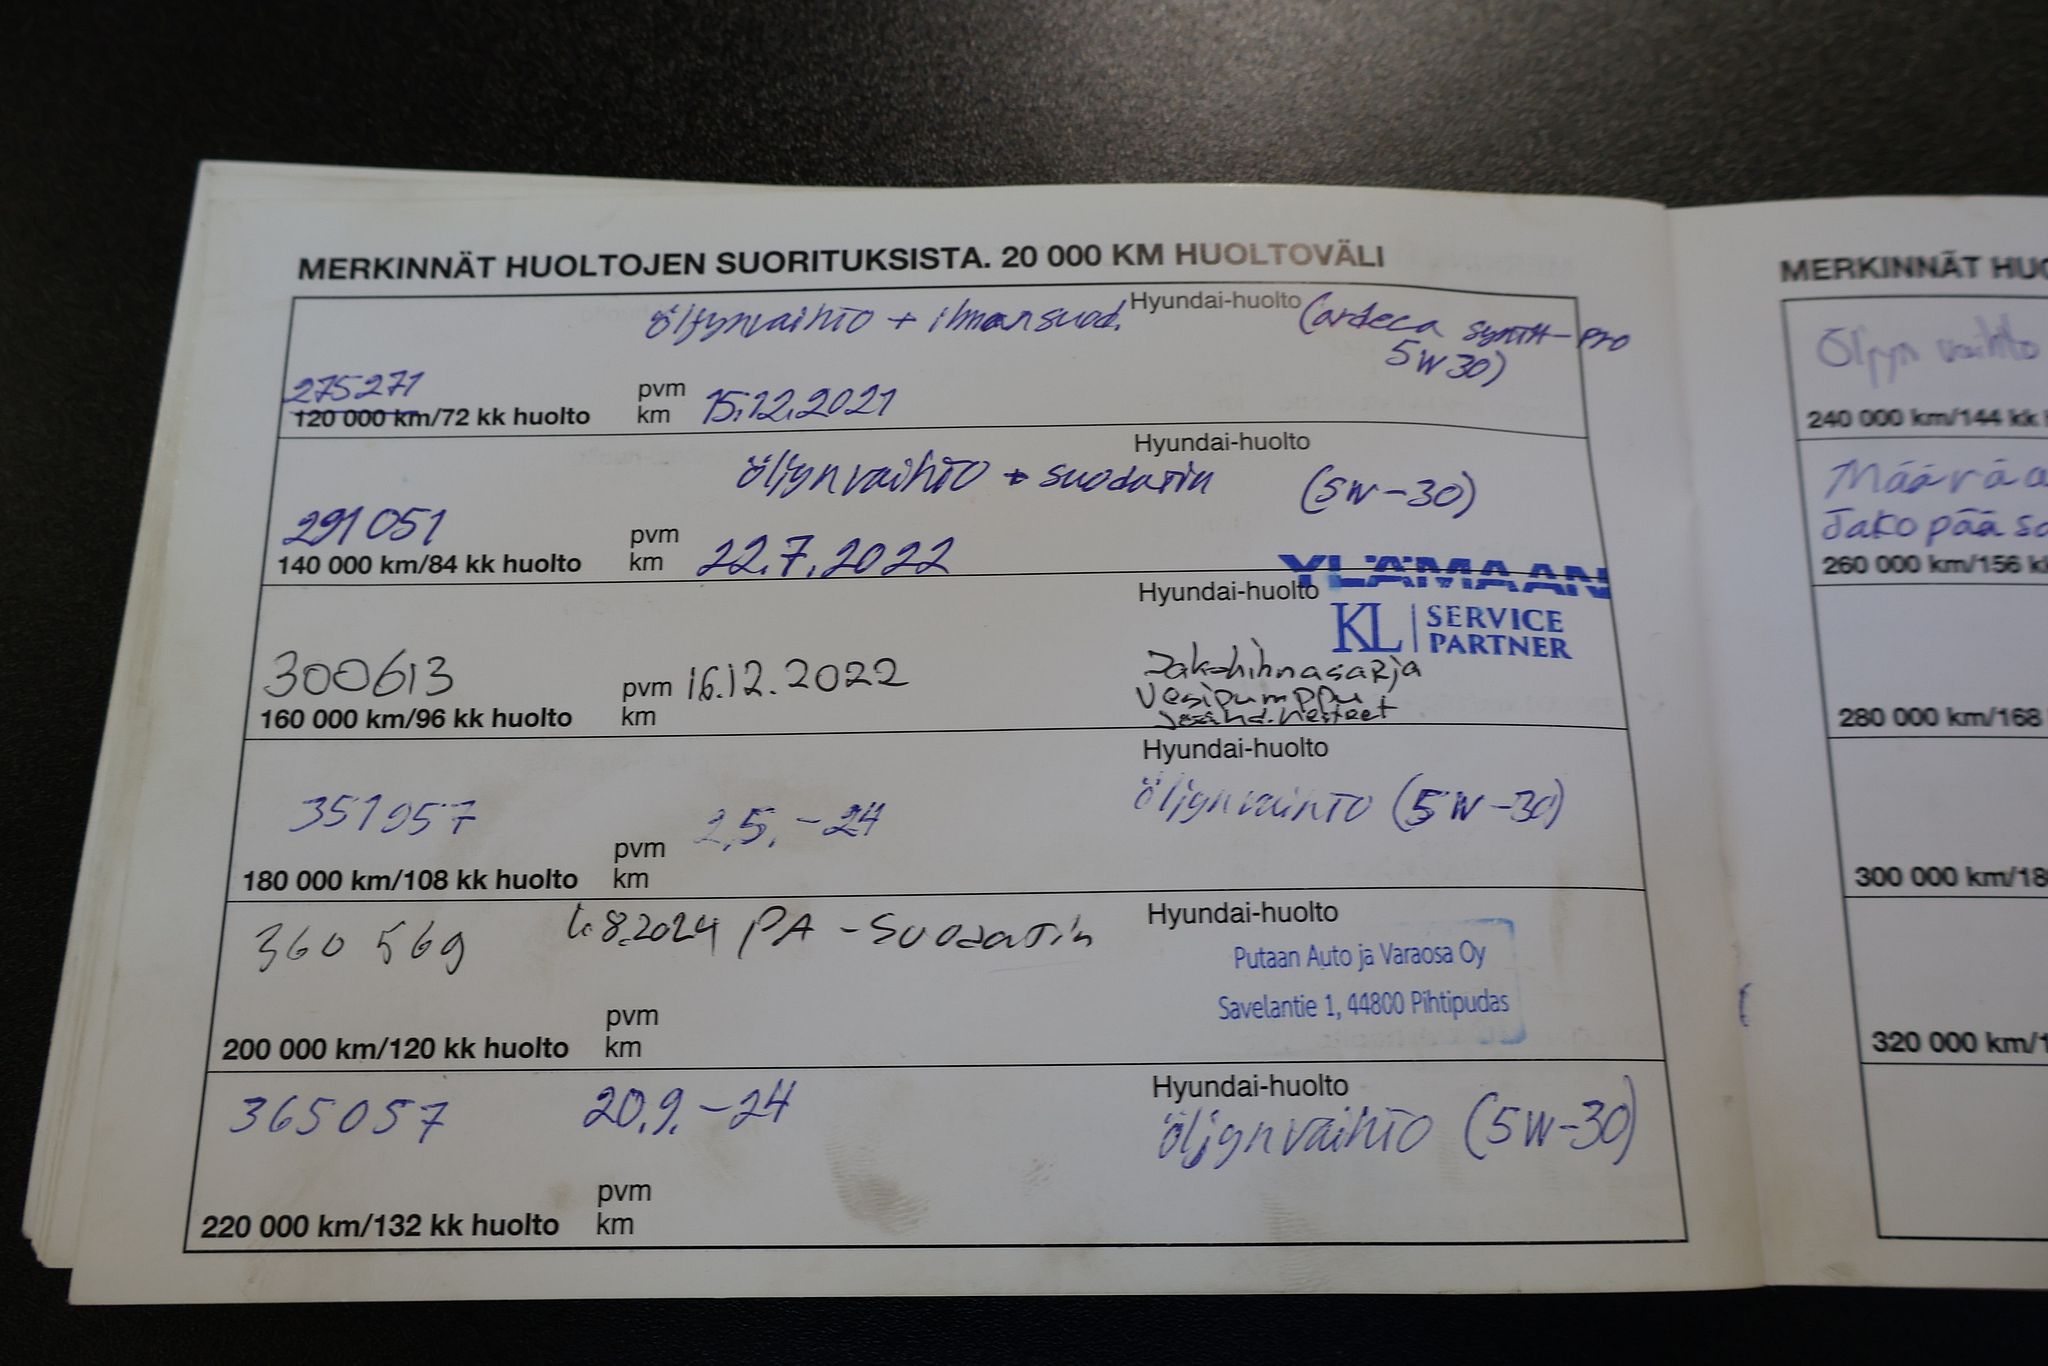 MERKINNÄT HUOLTOJEN SUORITUKSISTA. 20 000 KM HUOLTOVÄLI
öljynvaihto + ilmansuod. Hyundai-huolto (ardeca synth-pro
5W30)
275271
120 000 km/72 kk huolto pvm km 15.12.2021
Hyundai-huolto
öljynvaihto + suodatin (5W-30)
291051
140 000 km/84 kk huolto pvm km 22.7.2022
YLÄMAAN
Hyundai-huolto
KL SERVICE PARTNER
300613
160 000 km/96 kk huolto pvm km 16.12.2022
Jakohihnasarja
Vesipumppu
Jäähd.nesteet
Hyundai-huolto
351057 2.5.-24 öljynvaihto (5W-30)
180 000 km/108 kk huolto pvm km
Hyundai-huolto
360 569 1.8.2024 PA-Suodatin
Putaan Auto ja Varaosa Oy
Savelantie 1, 44800 Pihtipudas
200 000 km/120 kk huolto pvm km
Hyundai-huolto
365057 20.9.-24 öljynvaihto (5W-30)
220 000 km/132 kk huolto pvm km
MERKINNÄT HUO
Öljyn vaihto
240 000 km/144 kk
Määräa
Jakopää so
260 000 km/156 kk
280 000 km/168
300 000 km/18
320 000 km/1